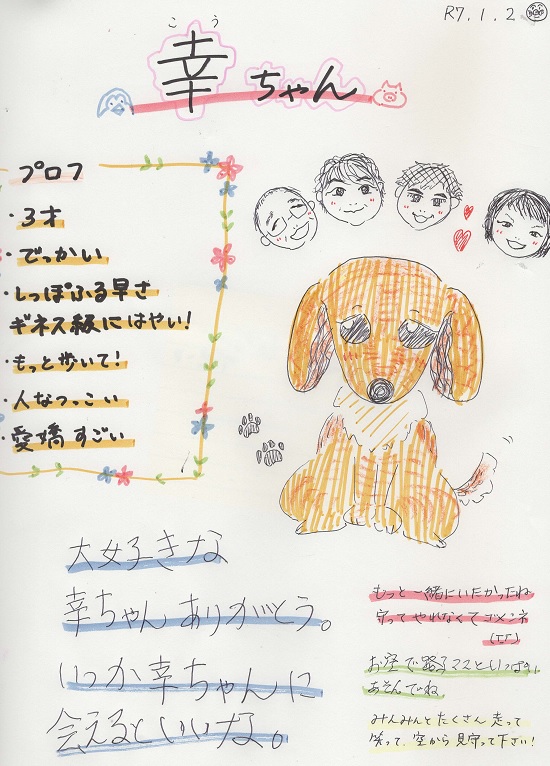 R7.1.2
こう
幸ちゃん
プロフ
・3才
・でっかい
・しっぽふる早さ
ギネス級にはやい!
・もっと歩いて!
・人なつっこい
・愛嬌すごい
大好きな
幸ちゃんありがとう。
いつか幸ちゃんに
会えるといいな。
もっと一緒にいたかったね
守ってやれなくてゴメンネ
お空で
あそんでね
みんみんとたくさん走って
笑って、空から見守って下さい!